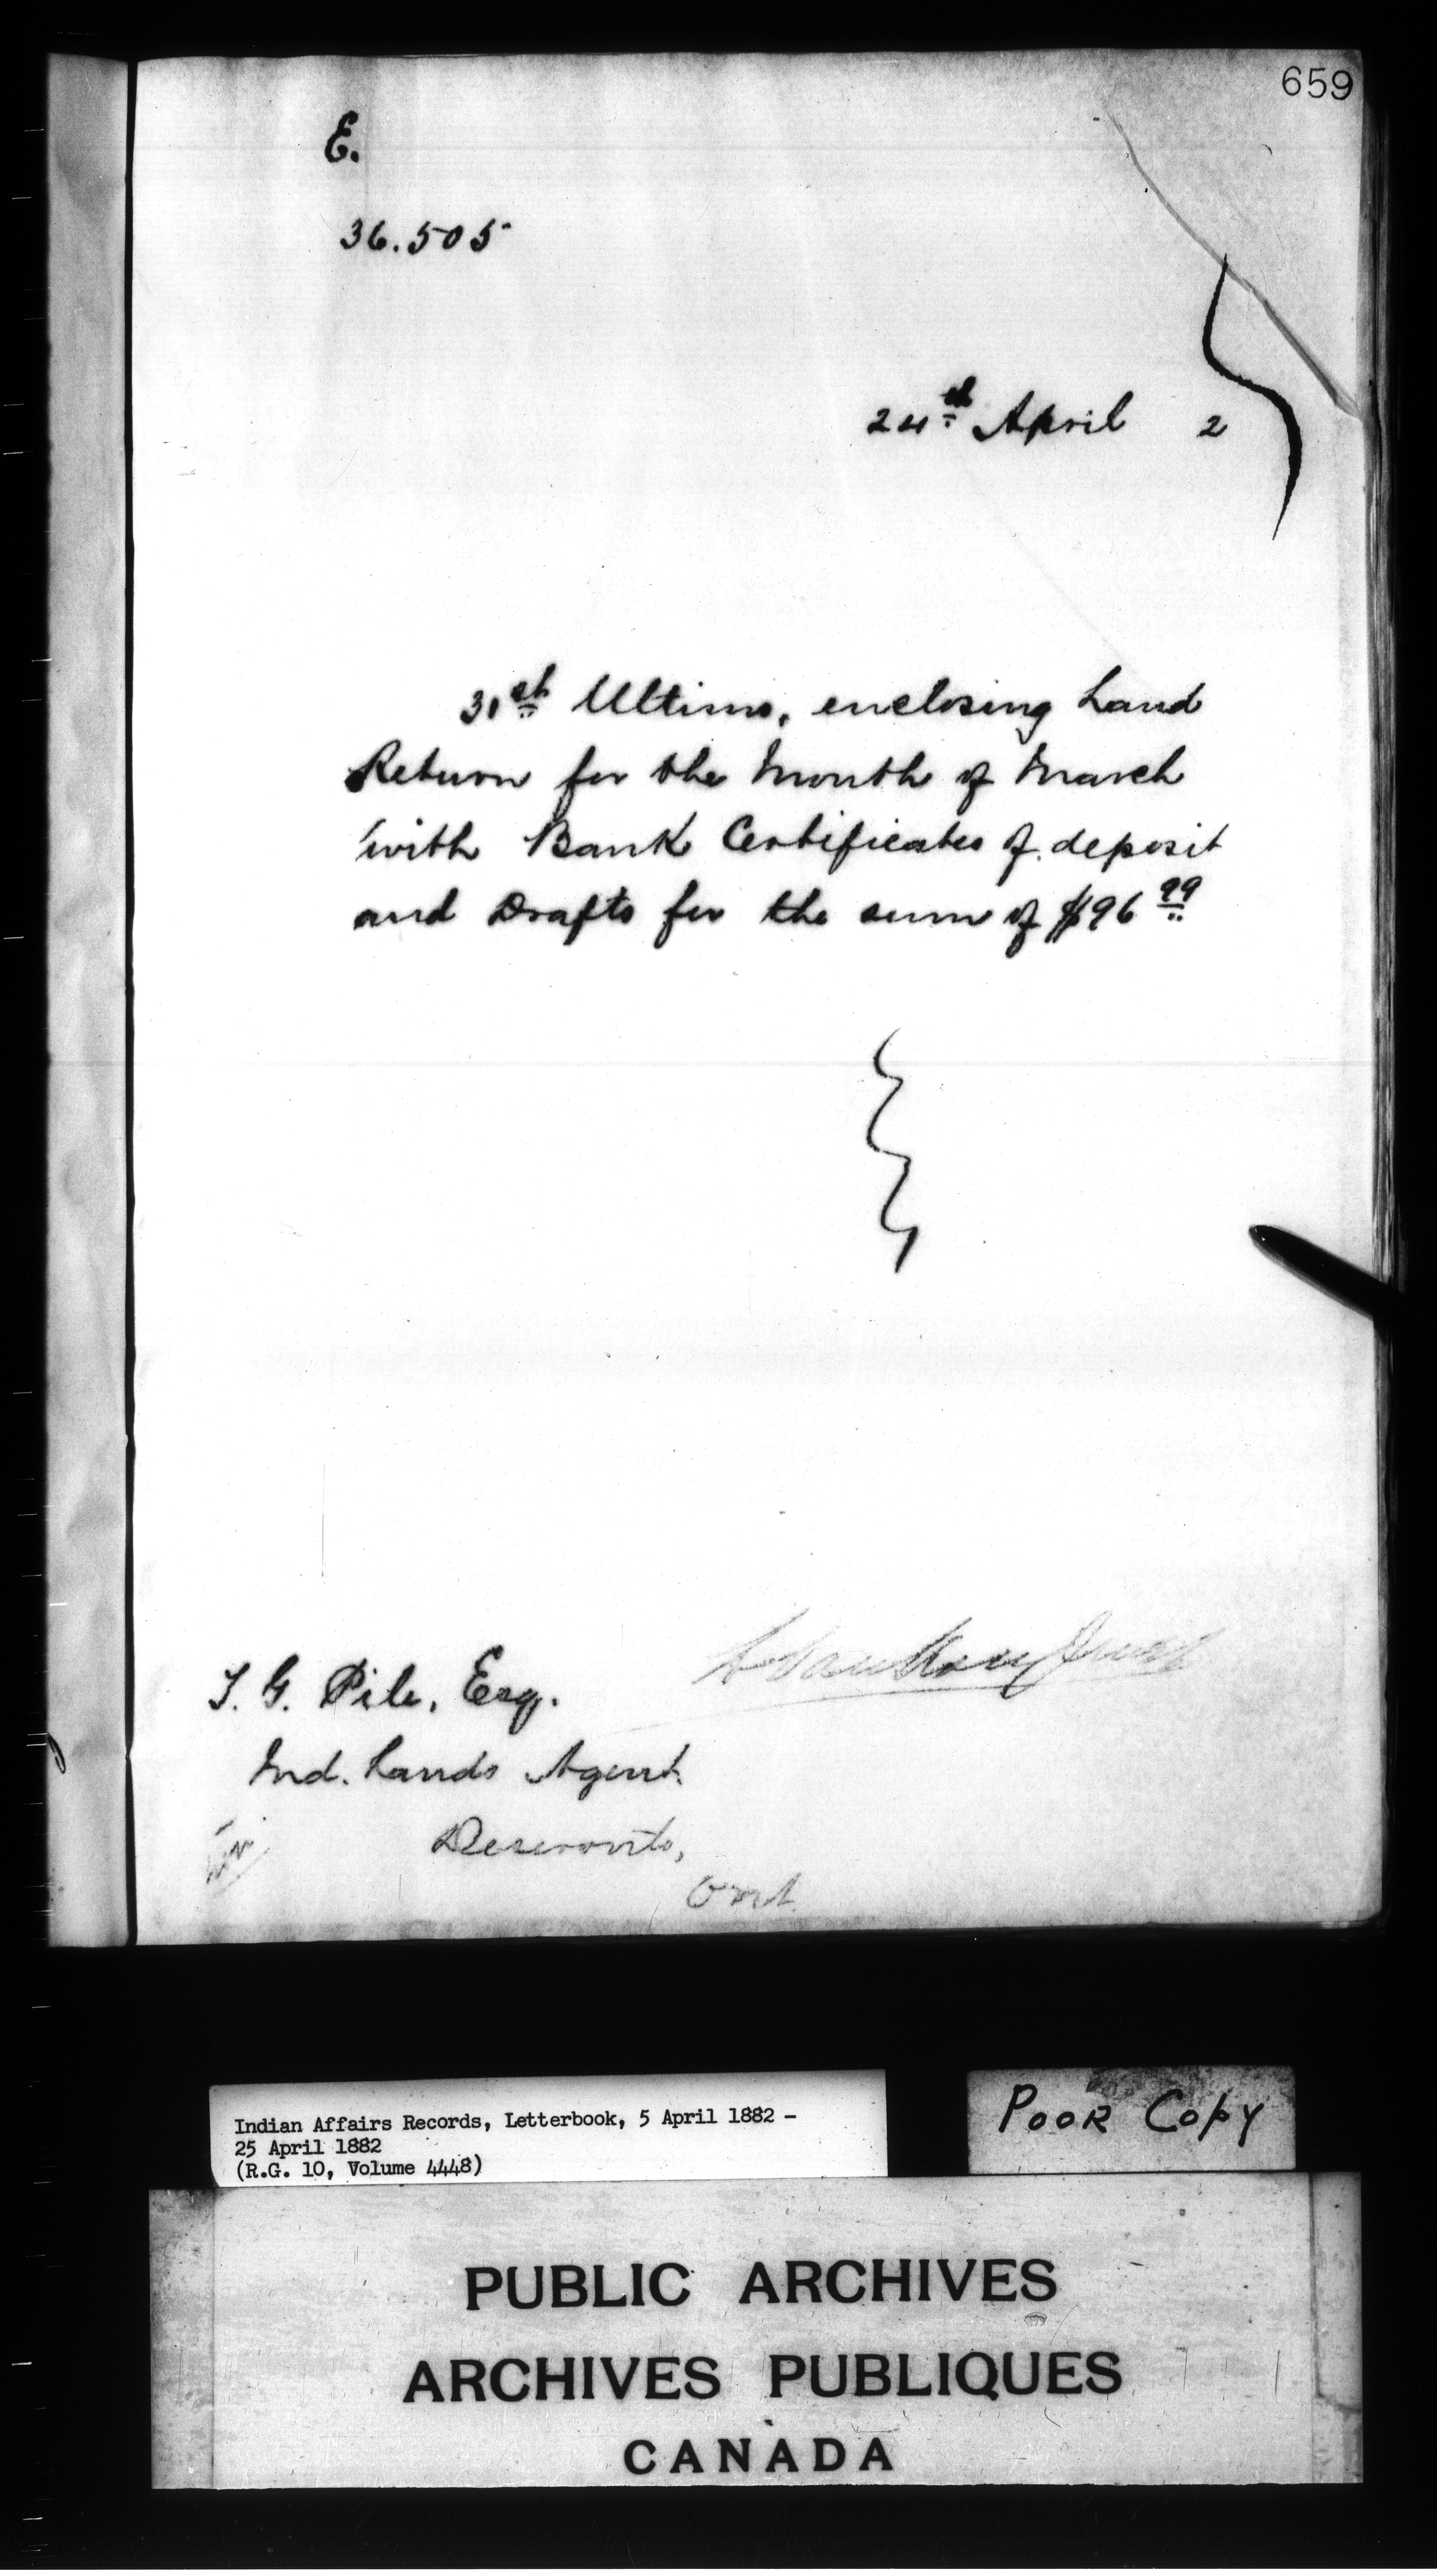 659
E.
36.505
24th April 2
31st Ultimo, enclosing Land
Return for the Month of March
with Bank Certificates of deposit
and Drafts for the sum of $96 99
T. G. Pile, Esq.
Ind. Lands Agent.
Deseronto,
Ont.
Indian Affairs Records, Letterbook, 5 April 1882 -
25 April 1882
(R.G. 10, Volume 4448)
POOR COPY
PUBLIC ARCHIVES
ARCHIVES PUBLIQUES
CANADA